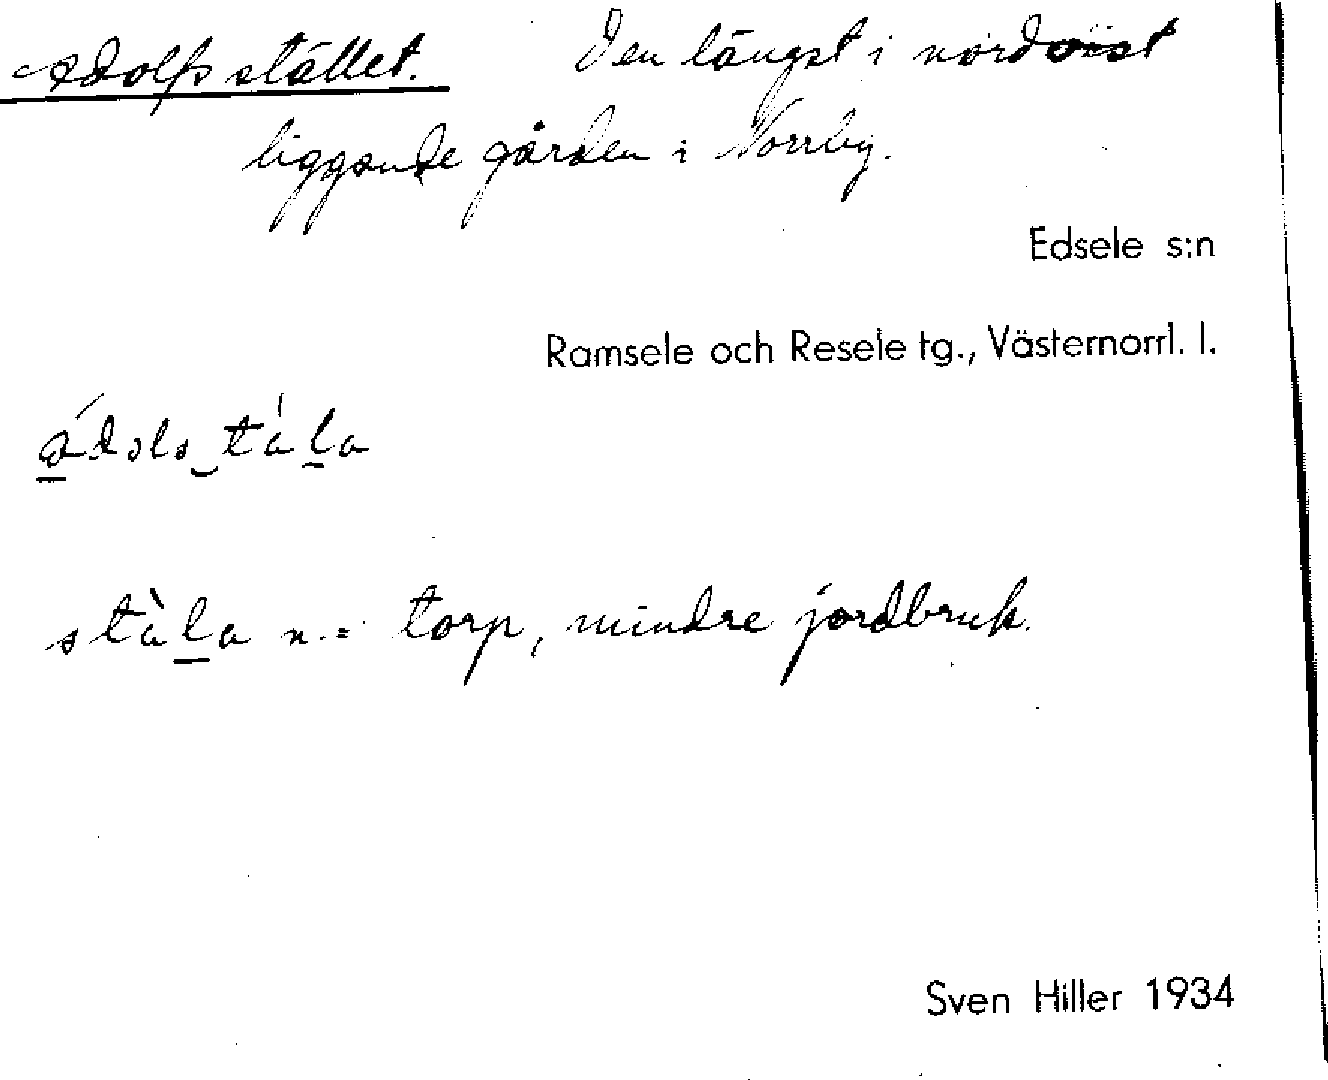 Adolfsstället. Den längst i nordväst
liggande gården i Norrby.
Edsele s:n
Ramsele och Resele tg., Västernorrl. l.
stàla n. = torp, mindre jordbruk.
Sven Hiller 1934